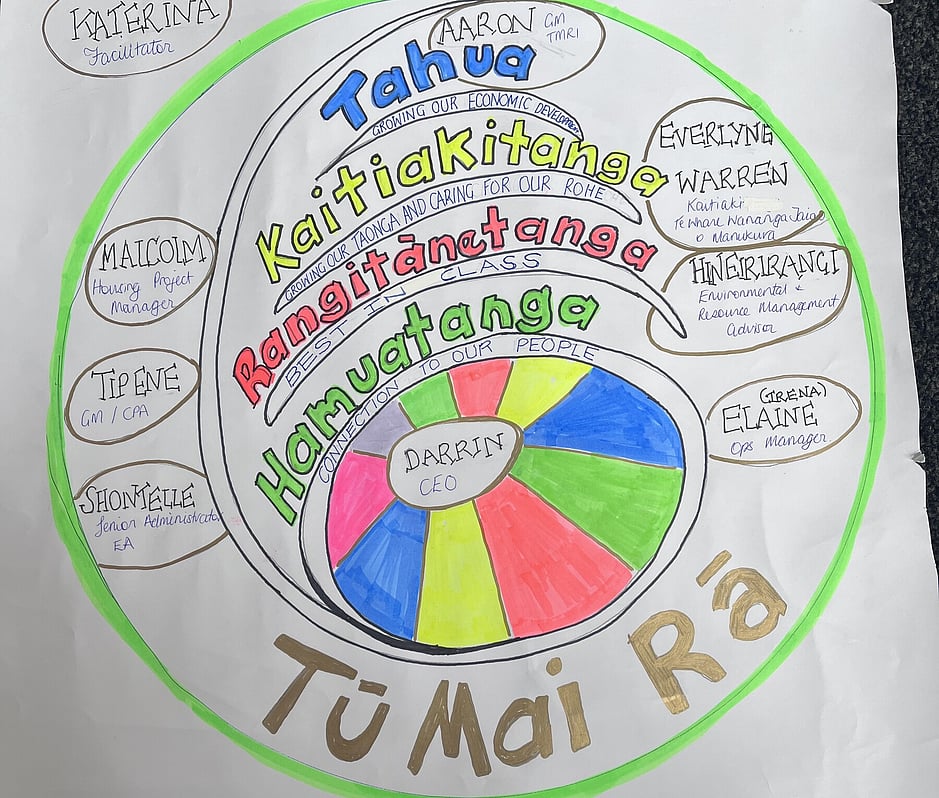 KATERINA
Facilitator
AARON GM
TMRI
Tahua
GROWING OUR ECONOMIC DEVELOPMENT
Kaitiakitanga
GROWING OUR TAONGA AND CARING FOR OUR ROHE
Rangitànetanga
BEST IN CLASS
Hamuatanga
CONNECTION TO OUR PEOPLE
DARRIN
CEO
EVERLYNE
WARREN
Kaitiaki
Te Whare Wananga Taiao
o Manukura
HINEIRIRANGI
Environmental &
Resource Management
Advisor
(IRENA)
ELAINE
Ops Manager
MALCOLM
Housing Project
Manager
TIPENE
GM / CPA
SHONTELLE
Senior Administrator
EA
Tū Mai Rā